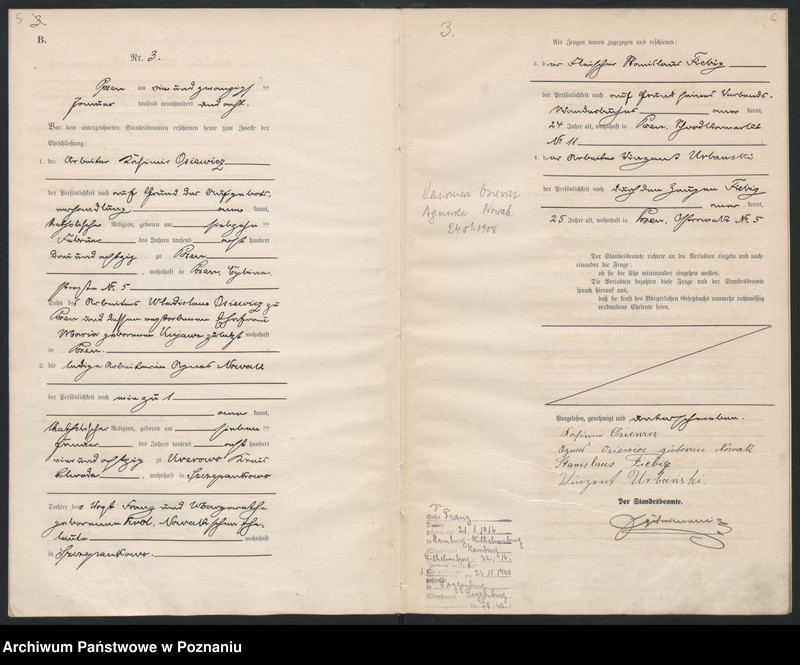 5 3.
B.
Nr. 3.
Posen am vier und zwanzigsten
Januar tausend neunhundert und acht.
Vor dem unterzeichneten Standesbeamten erschienen heute zum Zwecke der
Eheschließung:
1. der Arbeiter Kasimir Osiewicz
der Persönlichkeit nach auf Grund der Aufgebots-
verhandlung anerkannt,
katholischer Religion, geboren am siebzehnten
Februar des Jahres tausend achthundert
drei und achtzig zu Posen
, wohnhaft in Posen,
straße Nr. 5
Sohn des Arbeiters Wladislaus Osiewicz zu
Posen und dessen verstorbenen Ehefrau
Maria geborenen Kujawa zuletzt wohnhaft
in Posen.
2. die ledige Arbeiterin Agnes Nowak
der Persönlichkeit nach wie zu 1
anerkannt,
katholischer Religion, geboren am sieben
Januar des Jahres tausend achthundert
vier und achtzig zu Kreis
Schroda, wohnhaft in Szczepankowo
Tochter des Vogt Franz und Margarethe
geborenen Król, Nowak'schen Ehe-
leute wohnhaft
in Szczepankowo.
3.
Kazimierz Osiewicz
Agnieszka Nowak
24.01.1908
6
Als Zeugen waren zugezogen und erschienen:
3. der Fleischer Stanislaus Fiebig
der Persönlichkeit nach auf Grund seines Verbands-
Wanderbuches anerkannt,
24 Jahre alt, wohnhaft in Posen,
Nr. 11
4. der Arbeiter Vinzent Urbanski
der Persönlichkeit nach durch den Zeugen Fiebig
anerkannt,
25 Jahre alt, wohnhaft in Posen, Nr. 5
Der Standesbeamte richtete an die Verlobten einzeln und nach-
einander die Frage:
ob sie die Ehe miteinander eingehen wollen.
Die Verlobten bejahten diese Frage und der Standesbeamte
sprach hierauf aus,
daß sie kraft des Bürgerlichen Gesetzbuchs nunmehr rechtmäßig
verbundene Eheleute seien.
Vorgelesen, genehmigt und unterschrieben.
Kasimir Osiewicz
Agnes Osiewicz geborene Nowak
Stanislaus Fiebig
Vinzent Urbanski.
Der Standesbeamte.
Franz
21.1.1916
Hamburg-Wilhelmsburg
Hamburg
23.11.1940
Archiwum Państwowe w Poznaniu